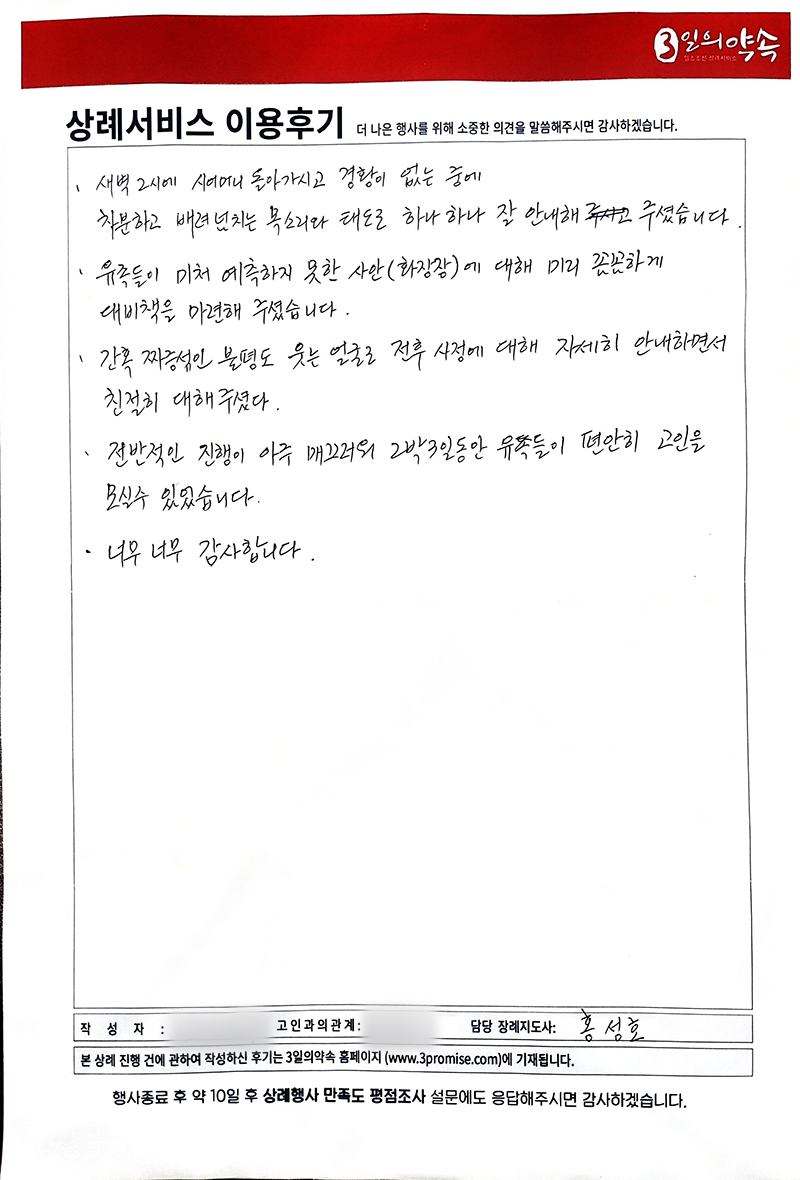 3일의약속
상례서비스 이용후기 더 나은 행사를 위해 소중한 의견을 말씀해주시면 감사하겠습니다.
· 새벽 2시에 시어머니 돌아가시고 경황이 없는 중에
차분하고 배려넘치는 목소리와 태도로 하나 하나 잘 안내해 주셨습니다.
· 유족들이 미처 예측하지 못한 사안(화장장)에 대해 미리 꼼꼼하게
대비책을 마련해 주셨습니다.
· 간혹 짜증섞인 불평도 웃는 얼굴로 전후 사정에 대해 자세히 안내하면서
친절히 대해주셨다.
· 전반적인 진행이 아주 매끄러워 2박3일동안 유족들이 편안히 고인을
모실수 있었습니다.
· 너무 너무 감사합니다.
작 성 자 : 고인과의관계: 담당 장례지도사: 홍성호
본 상례 진행 건에 관하여 작성하신 후기는 3일의약속 홈페이지 (www.3promise.com)에 기재됩니다.
행사종료 후 약 10일 후 상례행사 만족도 평점조사 설문에도 응답해주시면 감사하겠습니다.